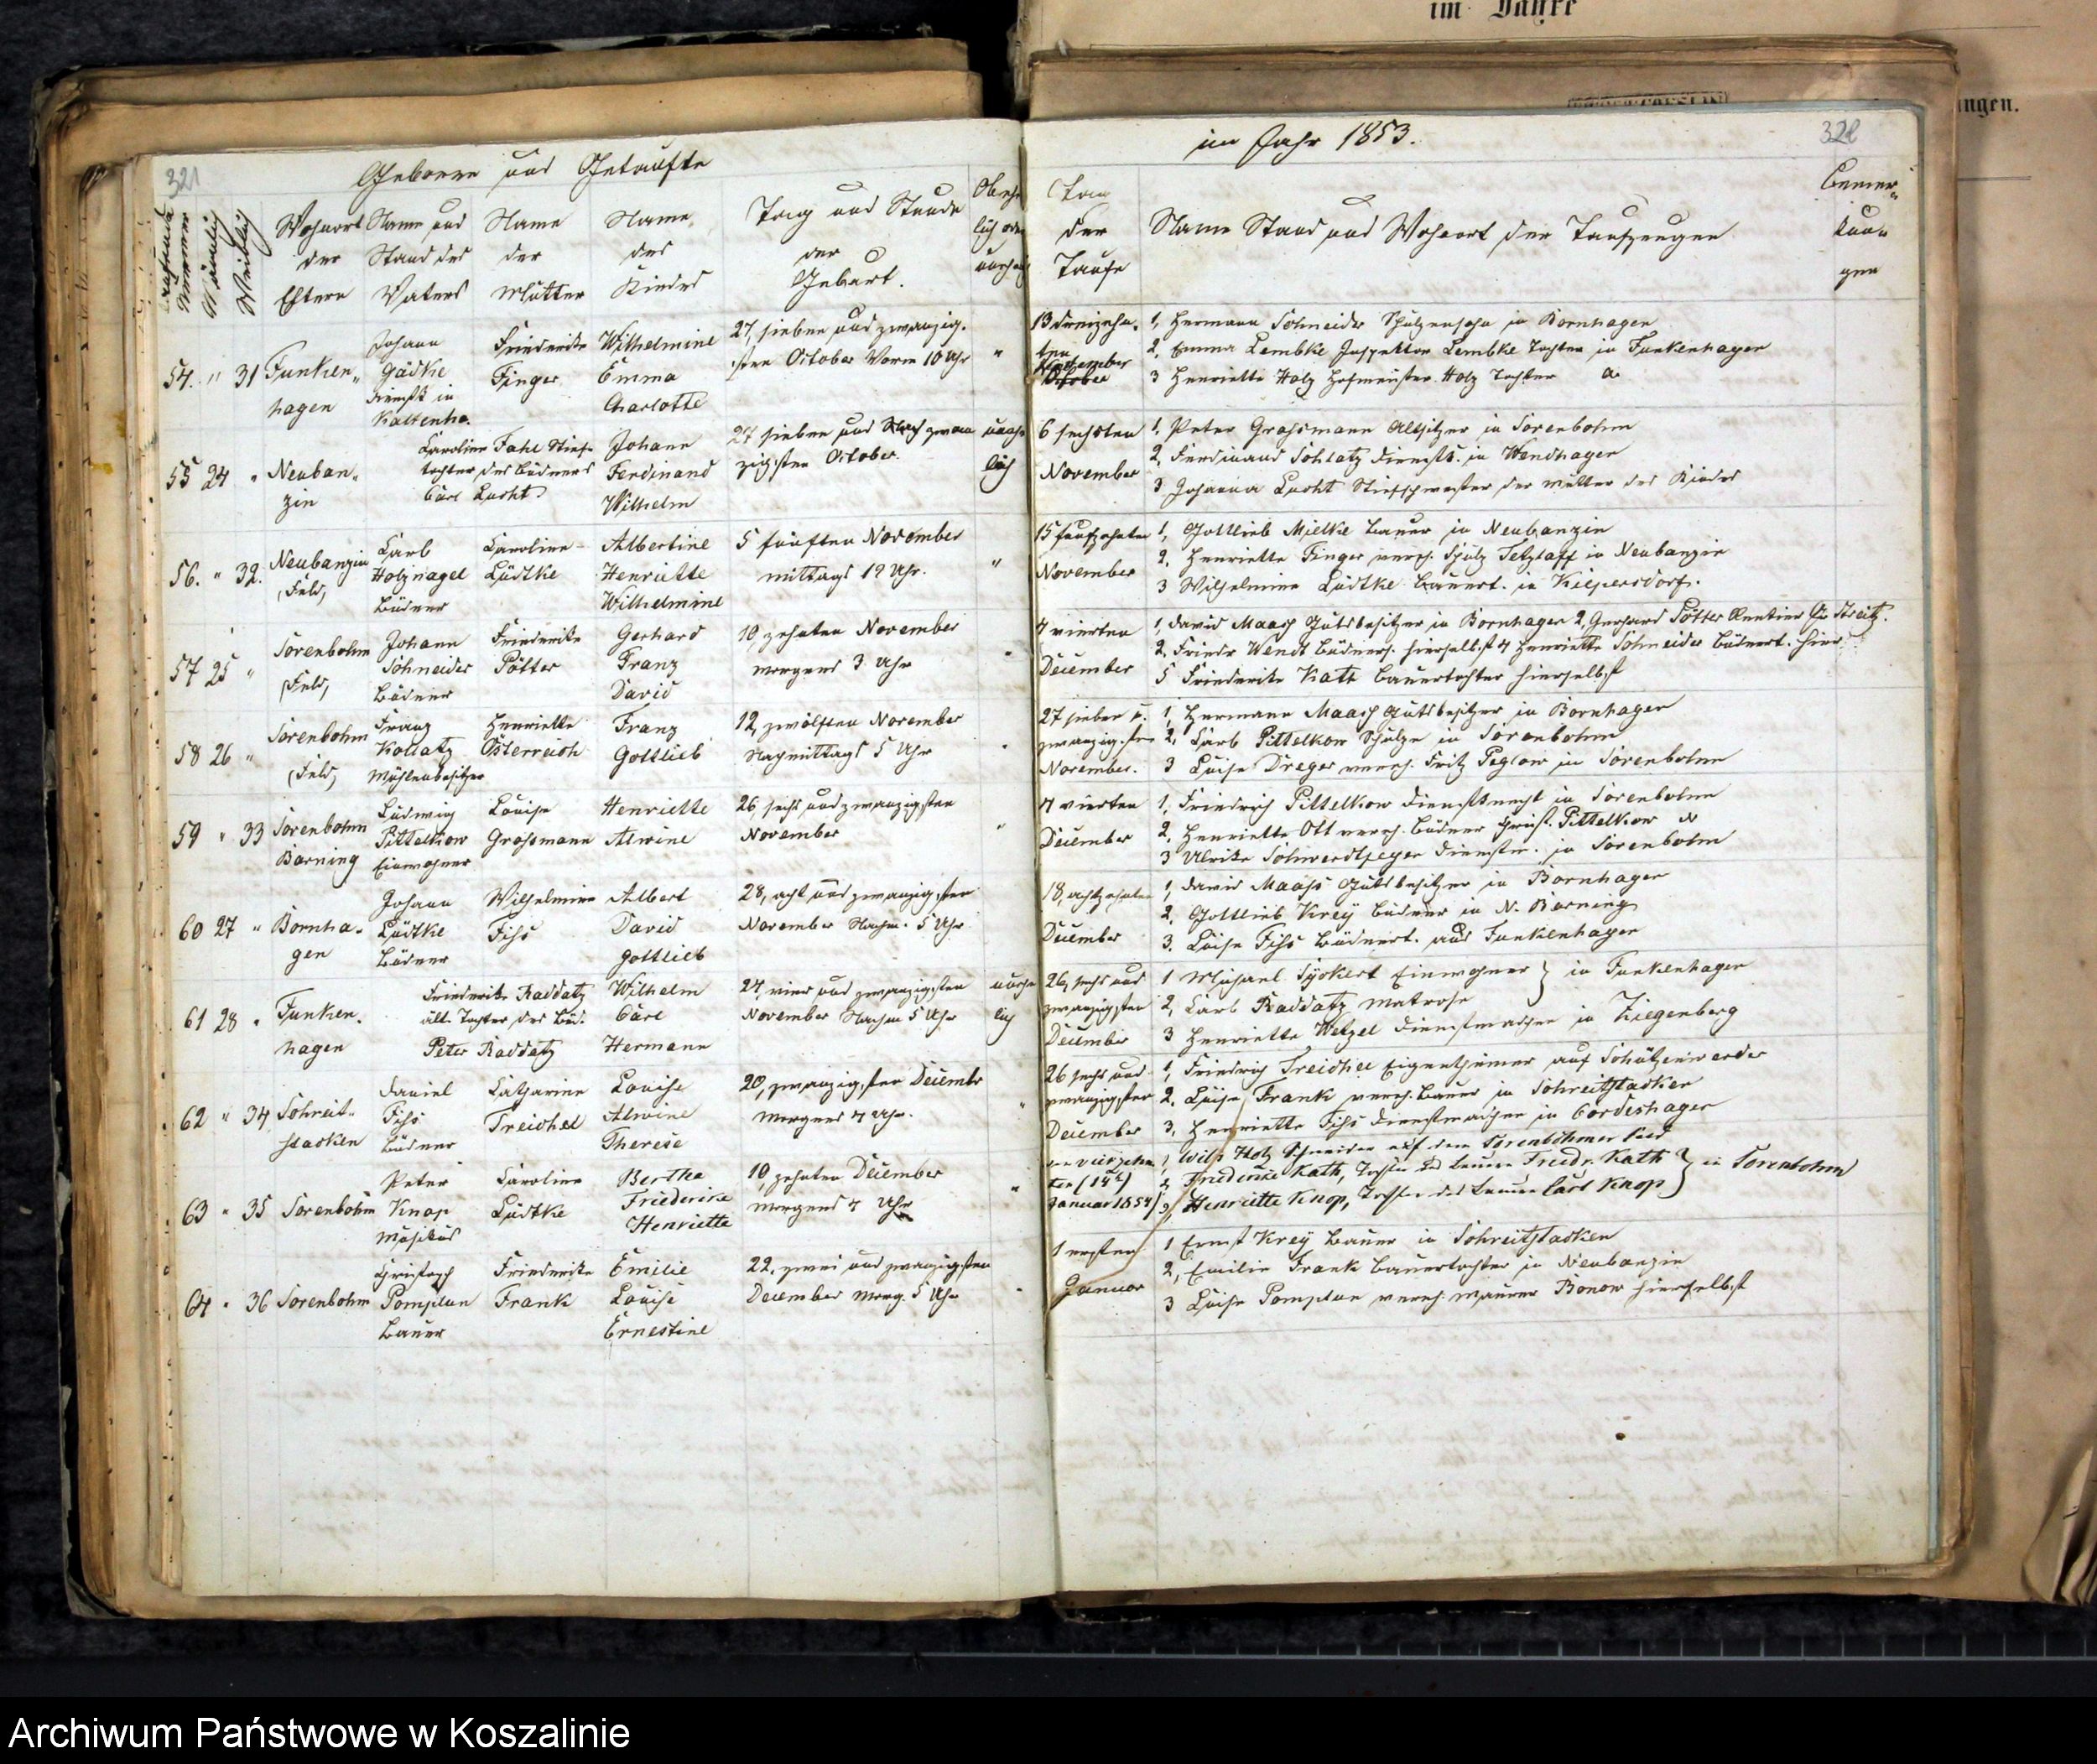 im Jahre
ngen.
321
Geborene und Getaufte
Laufende Nummer
Männlich
Weiblich
Wohnort der Eltern
Name und Stand des Vaters
Name der Mutter
Name des Kindes
Tag und Stunde der Geburt.
im Jahr 1853.
322
Tag der Taufe
Name Stand und Wohnort der Taufzeugen
Bemerkun„
gen
54. " 31 Funken„
hagen
Johann
Gädke
Dienstk. in
Friederike
Finger
Wilhelmine
Emma
Charlotte
27, sieben und zwanzig„
sten October Vorm 10 Uhr "
13 dreizehn„
ten
November
1, Hermann Schneider Schulzensohn in Bornhagen
2, Emma Lembke Inspektor Lembke Tochter in Funkenhagen
3 Henriette Holz Hofmeister Holz Tochter
55 24 " Neuban„
zin
Caroline Fahl Stief„
tochter des Büdners
Carl Lucht
Johann
Ferdinand
Wilhelm
27 sieben und zwan
zigsten October.
unehe
lich
6 sechsten
November
1, Peter Grassmann Altsitzer in Sorenbohm
2, Ferdinand Schlatz Dienstk. in Wendhagen
3, Johanna Lucht Stiefschwester der Mutter des Kindes
56. " 32. Neubanzin
(Feld)
Carl
Holznagel
Büdner
Caroline
Lüdtke
Albertine
Henriette
Wilhelmine
5 fünften November
mittags 12 Uhr. "
15 funfzehnten
November
1, Gottlieb Mielke Bauer in Neubanzin
2, Henriette Finger verehl. Schulz Tetzlaff in Neubanzin
3 Wilhelmine Lüdtke Bauert. in Kiepersdorf.
57 25 " Sorenbohm
(Feld)
Johann
Schneider
Büdner
Friederike
Pötter
Gerhard
Franz
David
10, zehnten November
morgens 3 Uhr "
4 vierten
December
1, David Maass Gutsbesitzer in Bornhagen 2, Gerhard Pötter Rentier Gr Streitz.
2, Friedr Wendt Büdners. hierselbst 4 Henriette Schneider Büdnert. hier
5 Friederike Kath Bauertochter hierselbst
58 26 " Sorenbohm
(Feld)
Franz
Kollatz
Mühlenbesitzer
Henriette
Österreich
Franz
Gottlieb
12, zwölften November
Nachmittags 5 Uhr "
27 sieben u.
zwanzigsten
November.
1, Hermann Maass Gutsbesitzer in Bornhagen
2, Carl Pittelkow Schulze in Sorenbohm
3 Luise Dreger verehl. Fritz Peglow in Sorenbohm
59 " 33 Sorenbohm
Barning
Ludwig
Pittelkow
Einwohner
Louise
Grassmann
Henriette
Alwine
26, sechs und zwanzigsten
November "
4 vierten
December
1, Friedrich Pittelkow Dienstknecht in Sorenbohm
2, Henriette Ott verehl. Büdner Christ. Pittelkow
3 Ulrike Schwerdtfeger Dienstm. in Sorenbohm
60 27 " Bornha„
gen
Johann
Lüdtke
Büdner
Wilhelmine
Fiss
Albert
David
Gottlieb
28, acht und zwanzigsten
November Nachm. 5 Uhr
18, achtzehnten
December
1, David Maass Gutsbesitzer in Bornhagen
2, Gottlieb Krey Büdner in N. Barning
3. Luise Fiss Büdnert. aus Funkenhagen
61 28 " Funken„
hagen
Friederike Raddatz
ält. Tochter des Büd.
Peter Raddatz
Wilhelm
Carl
Hermann
24, vier und zwanzigsten
November Nachm 5 Uhr
unehe
lich
26, sechs und
zwanzigsten
December
1 Michael Tyckert Einwohner } in Funkenhagen
2, Carl Raddatz Matrose
3 Henriette Wetzel Dienstmädchen in Ziegenberg
62 " 34 Schreit„
stacken
Daniel
Fiss
Büdner
Catharine
Treichel
Louise
Alwine
Therese
20, zwanzigsten Decembr
Morgens 4 Uhr. "
26 sechs und
zwanzigsten
December
1, Friedrich Treichel Eigenthümer auf Schützenwerder
2, Luise Frank verehl. Bauer in Schreitstacken
3, Henriette Fiss Dienstmädchen in Cordeshagen
63 " 35 Sorenbohm
Peter
Knop
Musikus
Caroline
Lüdtke
Bertha
Friederike
Henriette
10, zehnten December
morgens 4 Uhr "
den vierzehn
ten (14t)
Januar 1854
1, Wilh Holz Schneider auf dem Sorenbohmer Feld
2, Friederike Kath, Tochter des Bauern Friedr. Kath } in Sorenbohm
3, Henriette Knop, Tochter des Bauern Carl Knop
64 " 36 Sorenbohm
Christoph
Pomplun
Bauer
Friederike
Frank
Emilie
Louise
Ernestine
22. zwei und zwanzigsten
December morg. 5 Uhr "
1 ersten
Januar
1 Ernst Krey Bauer in Schreitstacken
2, Emilie Frank Bauertochter in Neubanzin
3 Luise Pomplun verehl. Maurer Bonow hierselbst
Archiwum Państwowe w Koszalinie